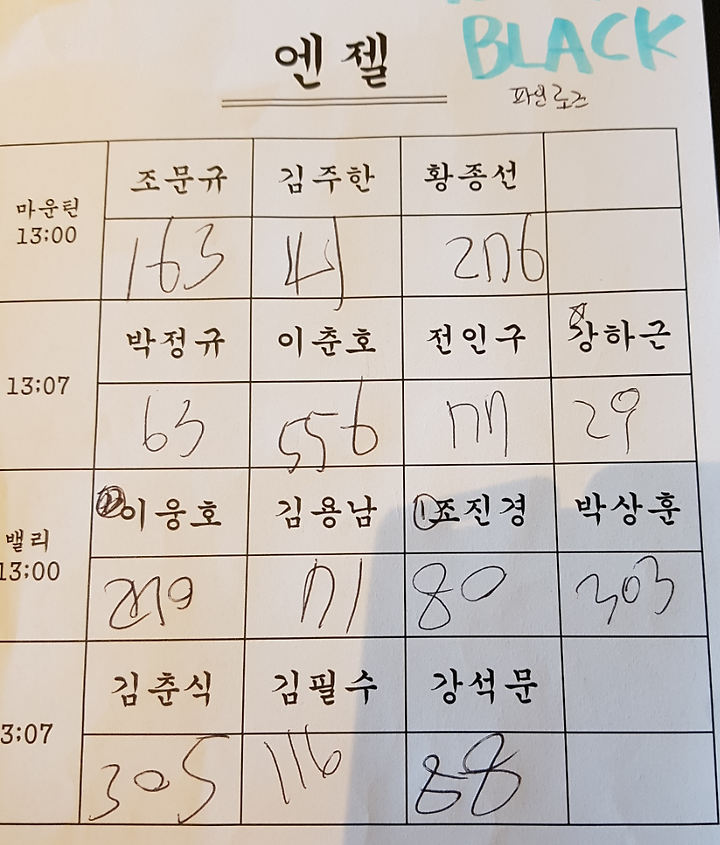 BLACK
엔젤
파인로즈
조문규 김주한 황종선
마운틴
13:00
163 276
박정규 이춘호 전인구 강하근
13:07
63 556 77 29
이웅호 김용남 ①조진경 박상훈
밸리
13:00
71 80 303
김춘식 김필수 강석문
3:07
305 116 88